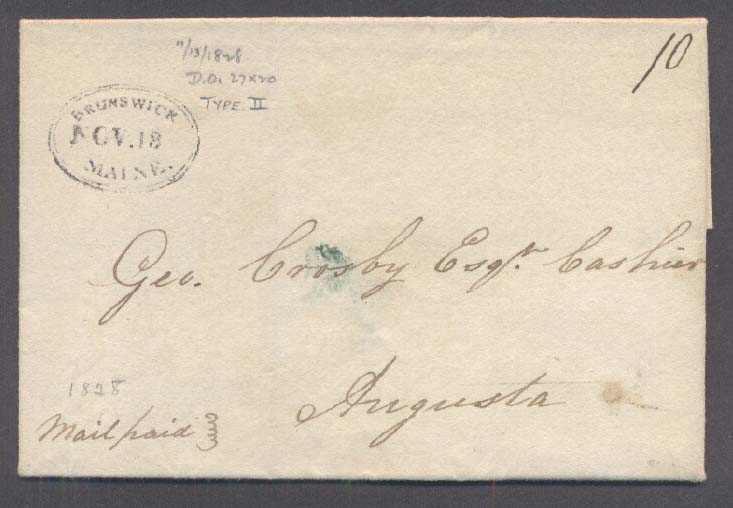 11/13/1828
D.O. 27x20
TYPE II
10
BRUNSWICK
NOV. 18
MAINE.
Geo. Crosby Esqr. Cashier
Augusta
1828
Mail paid